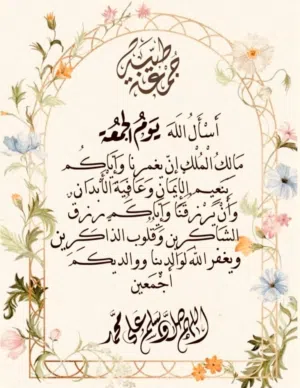 جمعة طيبة
أسأل الله يوم الجمعة
مالك الملك إن يغمرنا وإياكم
بنعيم الإيمان وعافية الأبدان
وأن يرزقنا وإياكم رزق
الشاكرين وقلوب الذاكرين
ويغفر الله لوالدينا ووالديكم
أجمعين
اللهم صل وسلم على محمد